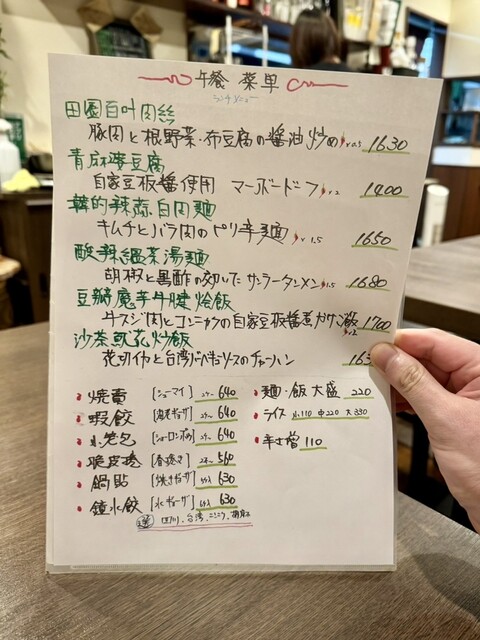 午餐 菜単
ランチメニュー
田園百叶肉絲
豚肉と根野菜・布豆腐の醤油炒め 1630
青麻婆豆腐
自家豆板醤使用 マーボードーフ 1400
韓的辣蒜白肉麺
キムチとバラ肉のピリ辛麺 v1.5 1650
酸辣湯麺
胡椒と黒酢の効いたサンラータンメン 1.5 1680
豆瓣魔芋牛腱烩飯
牛スジ肉とコンニャクの自家豆板醤煮かけご飯 1700
沙茶魷花炒飯
花切イカと台湾バーベキューソースのチャーハン
焼売 [シューマイ] 2ヶ〜 640
蝦餃 [海老ギョーザ] 2ヶ〜 640
小笼包 [ショーロンポウ] 2ヶ〜 640
脆皮捲 [春巻き] 2本〜 560
鍋貼 [焼きギョーザ] 6ヶ入 630
鐘水餃 [水ギョーザ] 6ヶ入 630
選 四川、台湾、
麺・飯 大盛 220
ライス 小110 中220 大330
辛さ増 110